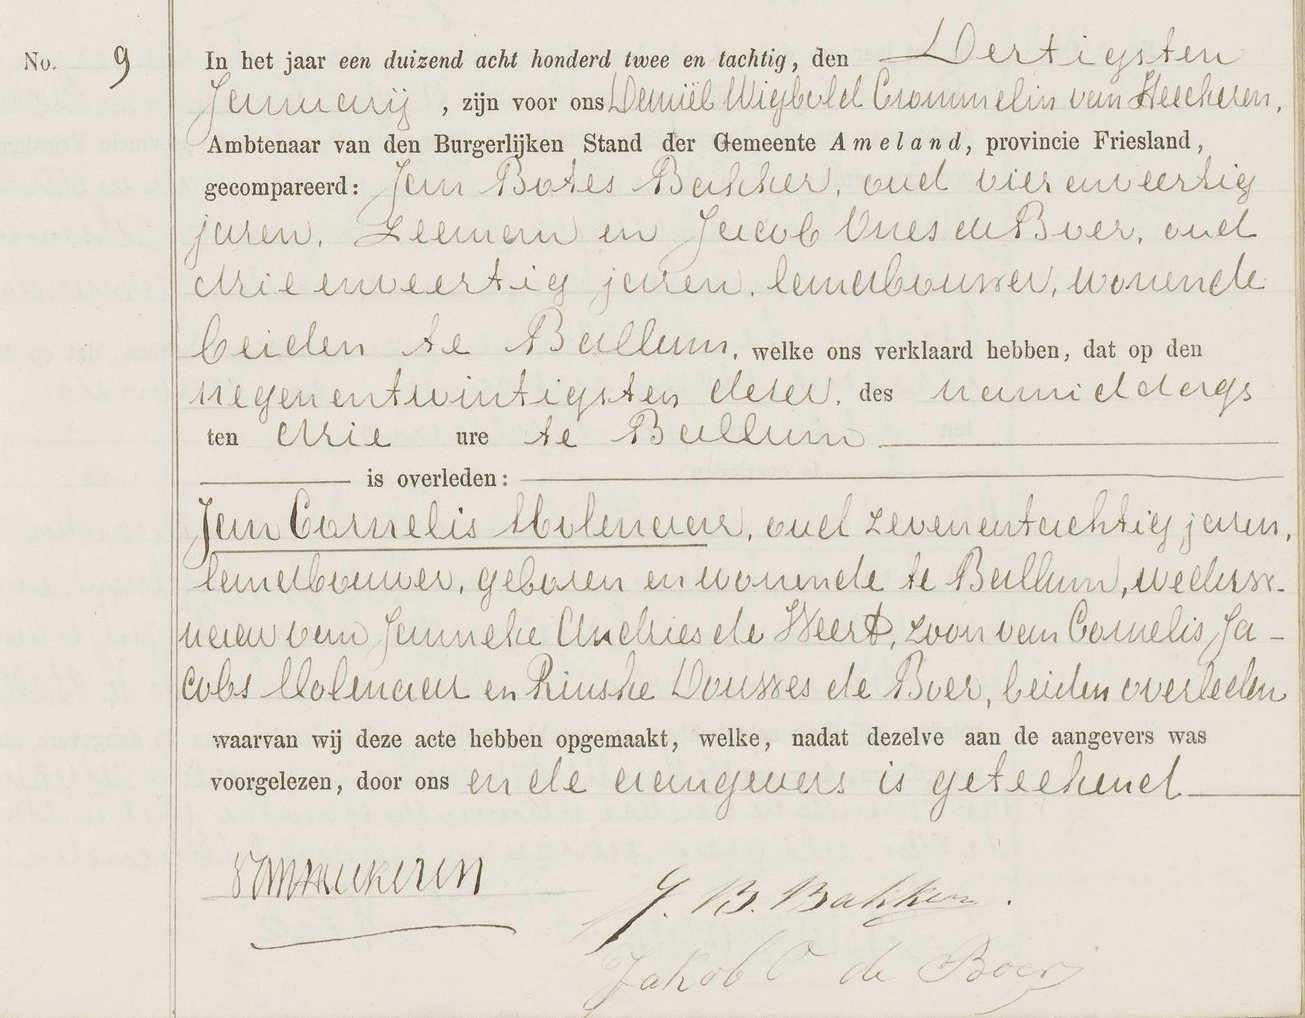 No. 9 In het jaar een duizend acht honderd twee en tachtig, den Dertigsten
Januarij, zijn voor ons Daniël Wigbold Crommelin van Heeckeren,
Ambtenaar van den Burgerlijken Stand der Gemeente Ameland, provincie Friesland,
gecompareerd: Jan Botes Bakker, oud vier enveertig
jaren, Zeeman en Jacob Ones de Boer, oud
drie enveertig jaren, landbouwer, wonende
beiden te Ballum, welke ons verklaard hebben, dat op den
negenentwintigsten dezer, des namiddags
ten drie ure te Ballum
is overleden:
Jan Cornelis Molenaar, oud zevenentachtig jaren,
landbouwer, geboren en wonende te Ballum, weduw-
naar van Janneke Andries de Weerd, zoon van Cornelis Ja-
cobs Molenaar en Rinske Douwes de Boer, beiden overleden
waarvan wij deze acte hebben opgemaakt, welke, nadat dezelve aan de aangevers was
voorgelezen, door ons en de aangevers is geteekend
VanHeeckeren
J. B. Bakker.
Jakob O de Boer